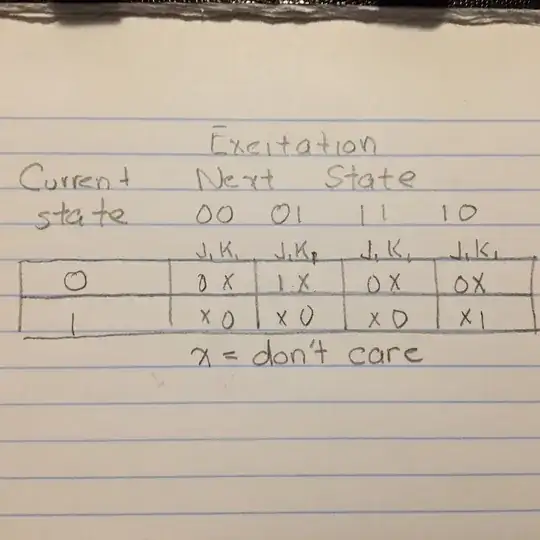 Excitation
Current Next State
state 00 01 11 10
J₁K₁ J₁K₁ J₁K₁ J₁K₁
0 0X 1X 0X 0X
1 X0 X0 X0 X1
x = don't care